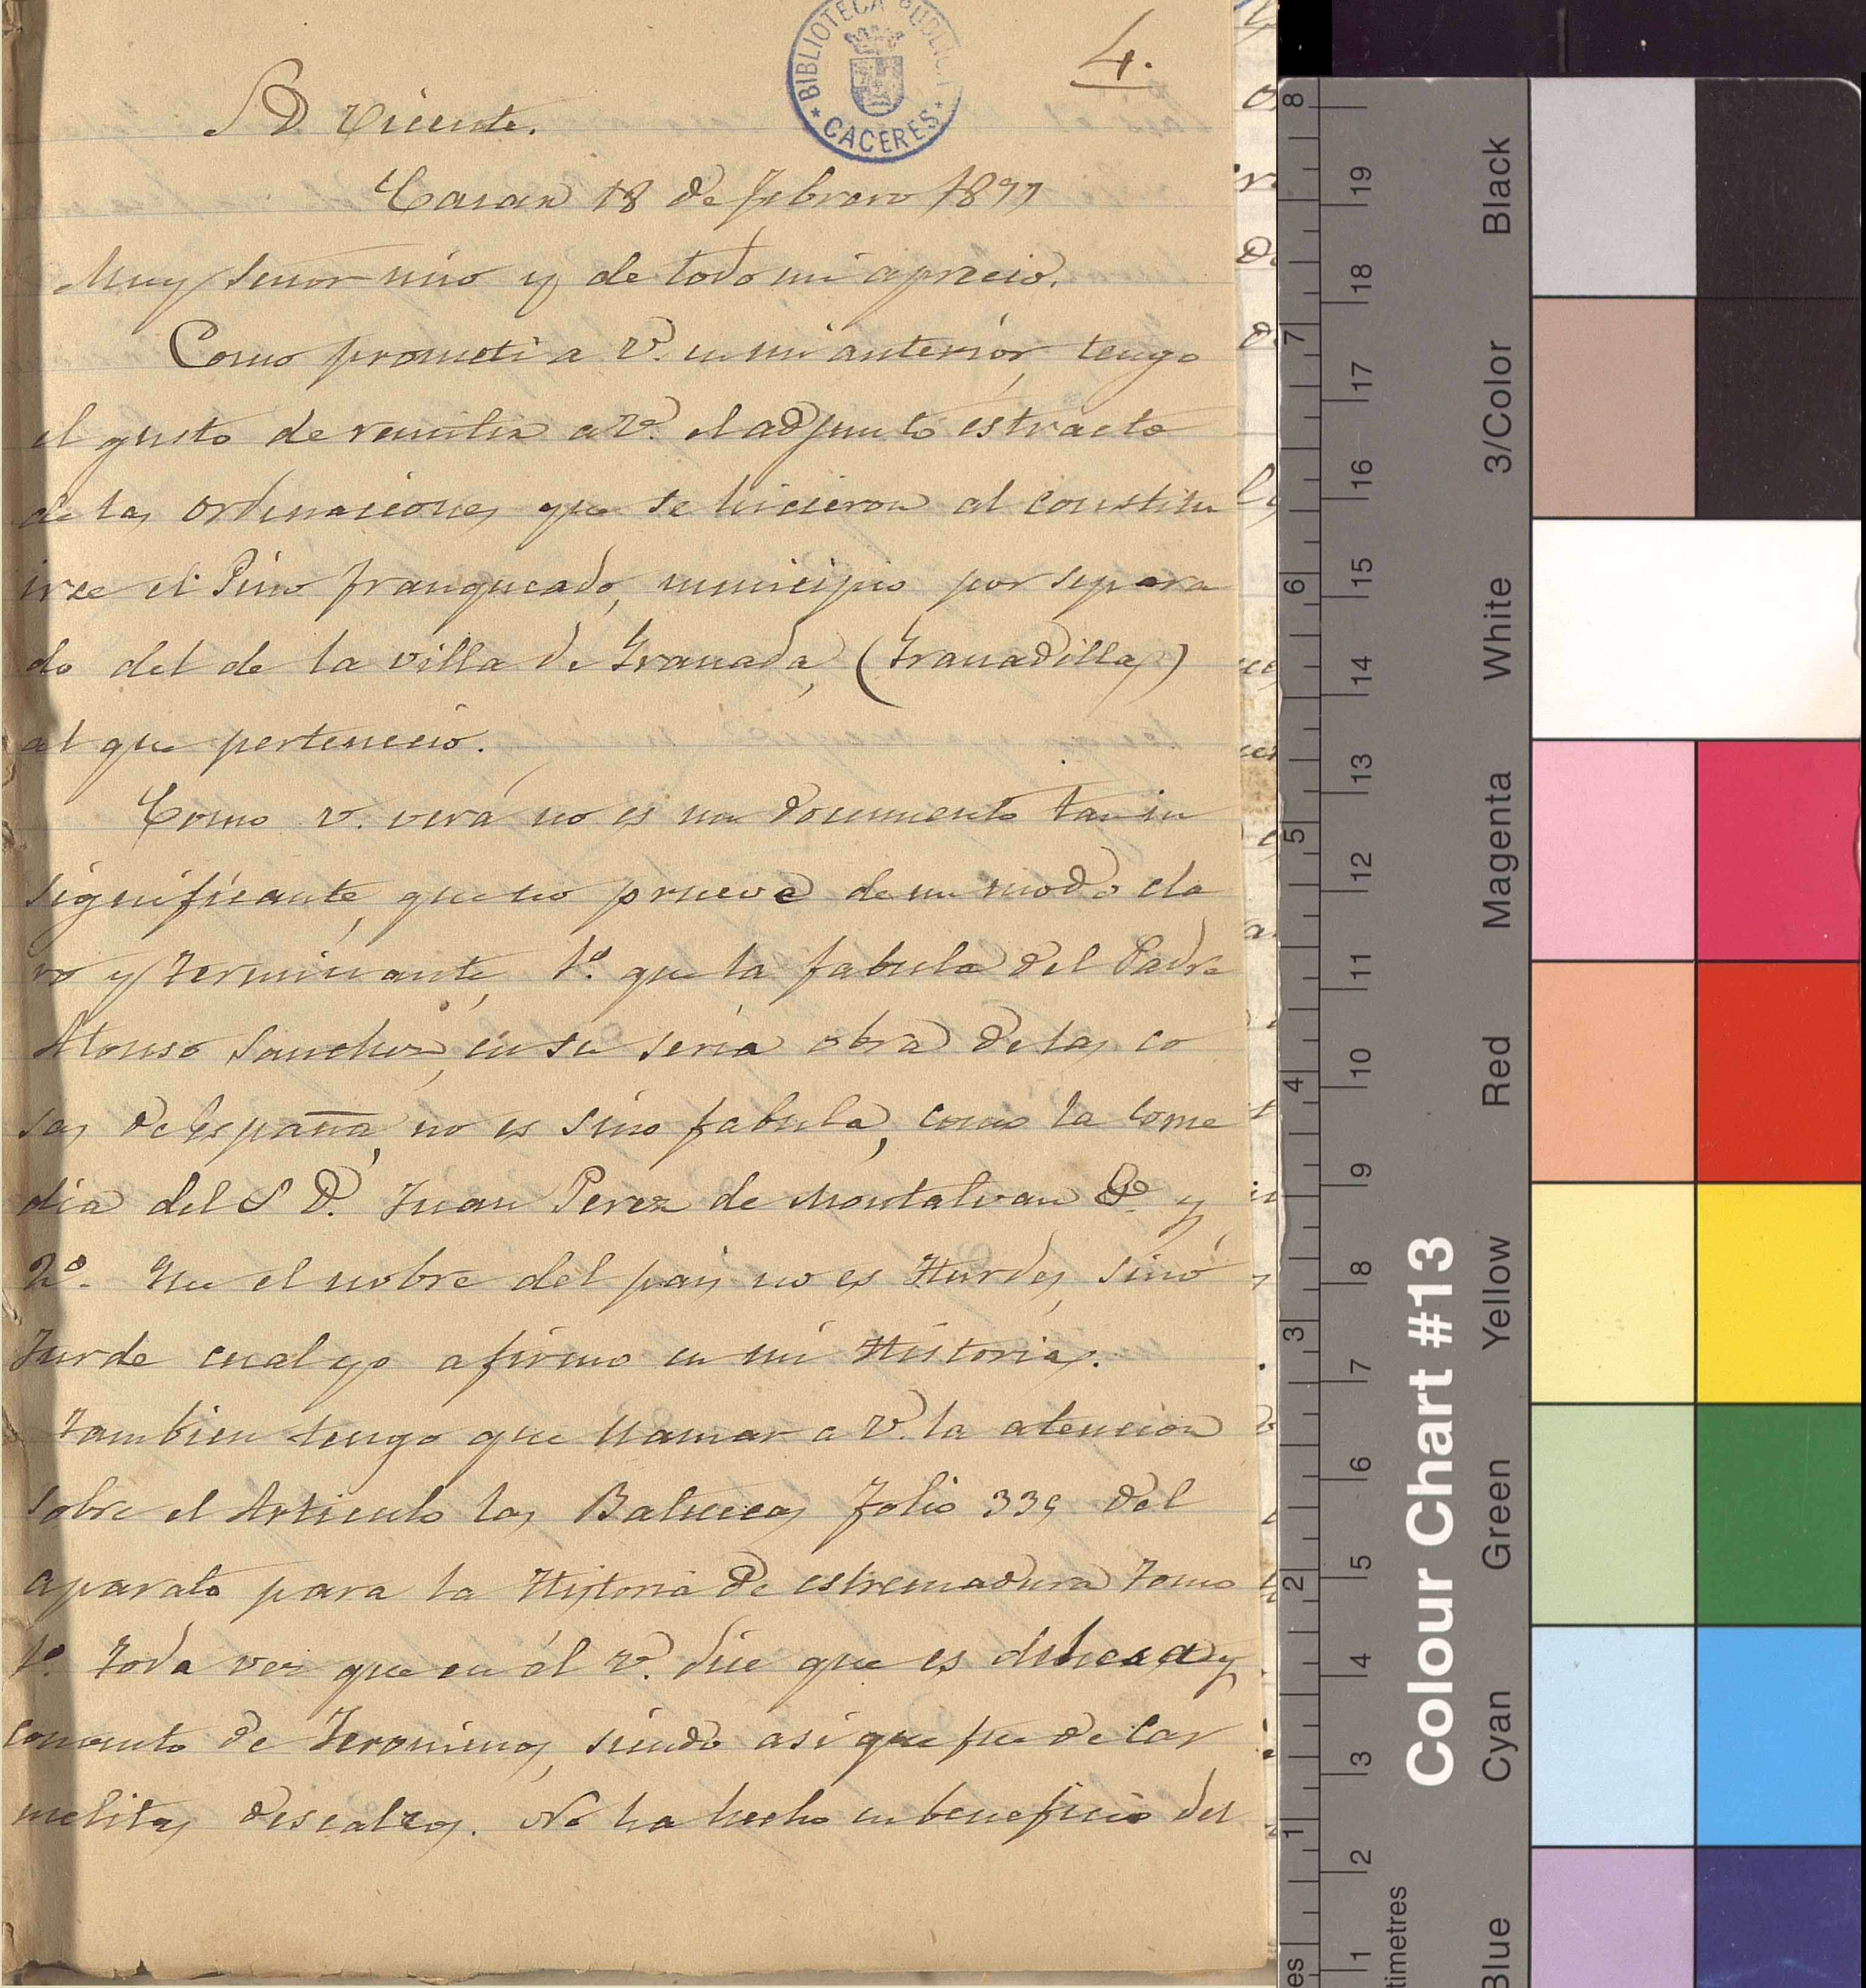 BIBLIOTECA PUBLICA
* CACERES *
4.
S D. Vicente.
Casar 18 de febrero 1877
Muy señor mio y de todo mi aprecio.
Como prometi a V. en mi anterior, tengo
el gusto de remitir a V. el adjunto estracto
de las ordenaciones que se hicieron al constitu
irse el Pino franqueado, municipio por separa
do del de la villa de Granada, (Granadilla)
al que pertenecio.
Como v. verá no es un documento tan in
significante, que no prueve de un modo cla
ro y terminante, 1º. que la fabula del Padre
Alonso Sanchez, en su seria obra de las co
sas de españa, no es sino fabula, como la come
dia del S D. Juan Perez de Montalvan &ª. y
2º. Que el nobre del pais no es Hurdes, sinó
Jurde cual yo afirmo en mi Historia.
Tambien tengo que llamar a V. la atencion
sobre el Articulo las Batuecas folio 339 del
aparato para la Historia de estremadura Tomo
1º. Toda vez que en él V. dice que es dehesa y
convento de Jeronimos, siendo asi que fue de Car
melitas descalzos. No ha hecho en beneficio del
Colour Chart #13
Black
3/Color
White
Magenta
Red
Yellow
Green
Cyan
Blue
8 7 6 5 4 3 2 1
19 18 17 16 15 14 13 12 11 10 9 8 7 6 5 4 3 2 1
timetres
es